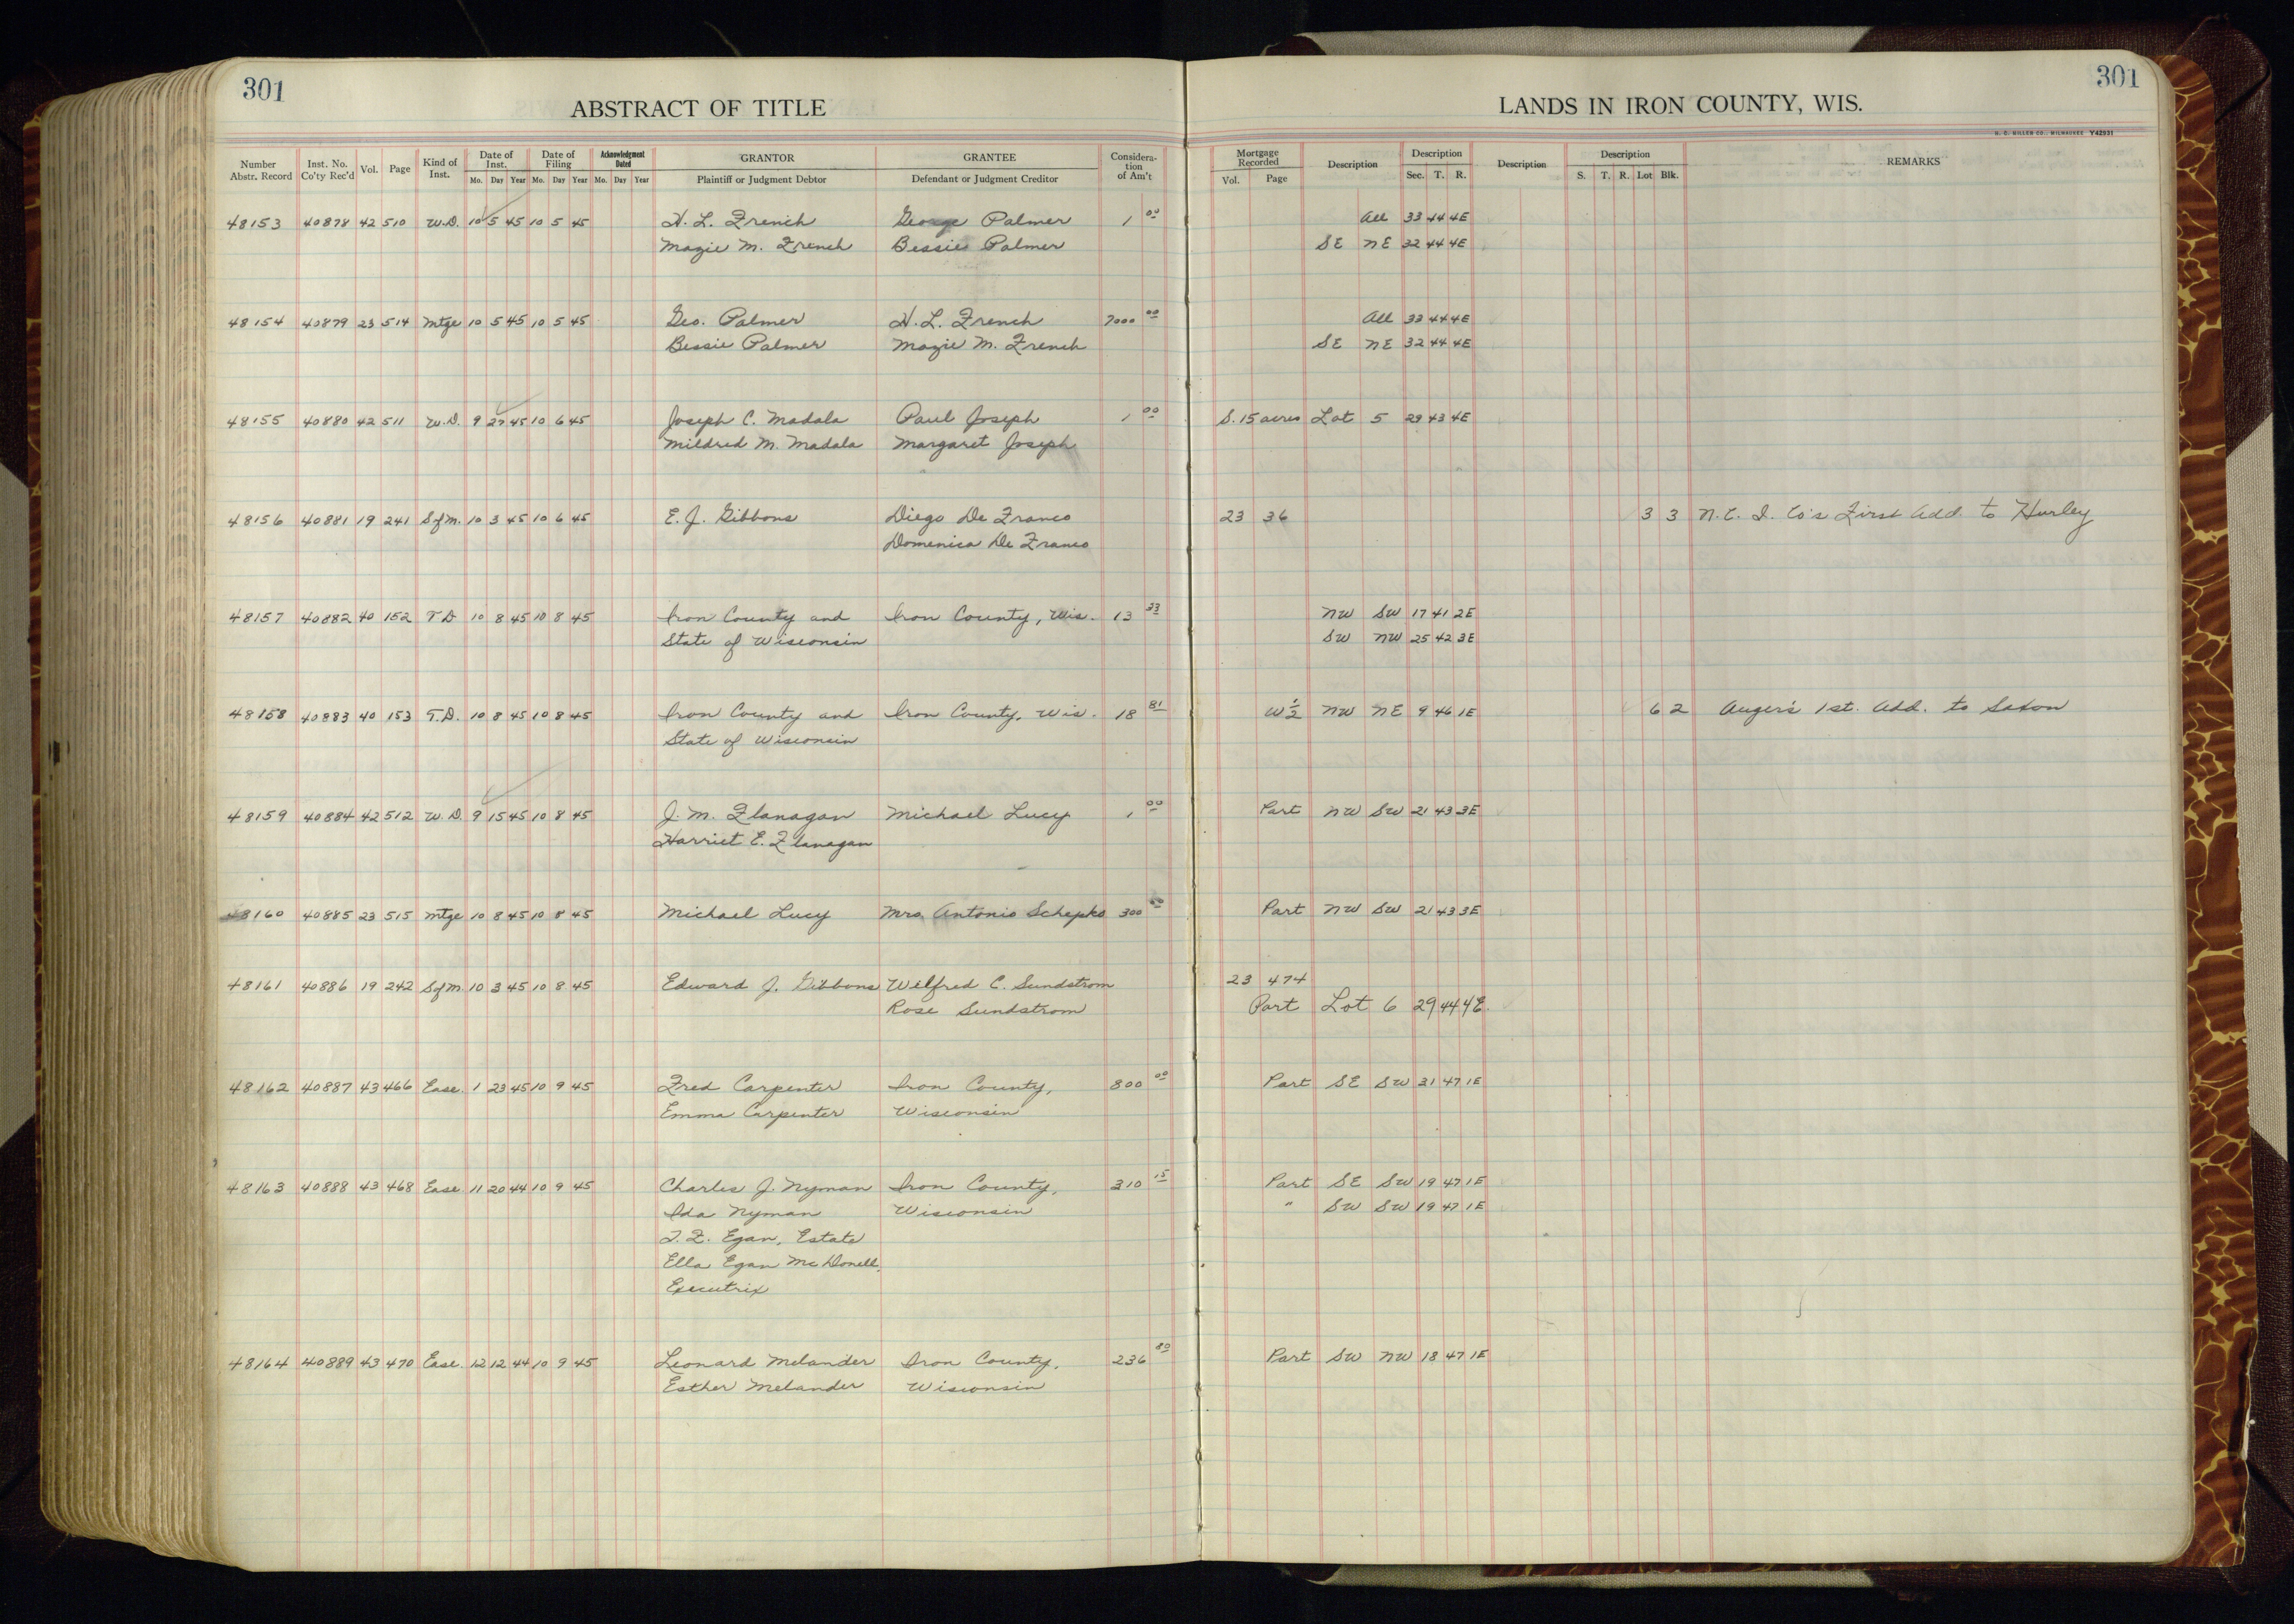 301
ABSTRACT OF TITLE
LANDS IN IRON COUNTY, WIS.
301
H. C. MILLER CO., MILWAUKEE Y42931
Number Abstr. Record Inst. No. Co'ty Rec'd Vol. Page Kind of Inst. Date of Inst. Mo. Day Year Date of Filing Mo. Day Year Acknowledgment Dated Mo. Day Year GRANTOR Plaintiff or Judgment Debtor GRANTEE Defendant or Judgment Creditor Considera-tion of Am't Mortgage Recorded Vol. Page Description Description Sec. T. R. Description Description S. T. R. Lot Blk. REMARKS
48153 40878 42 510 W.D. 10 5 45 10 5 45 H. L. French George Palmer 1 00 All 33 44 4E
Mazie M. French Bessie Palmer SE NE 32 44 4E
48154 40879 23 514 Mtge 10 5 45 10 5 45 Geo. Palmer H. L. French 7000 00 All 33 44 4E
Bessie Palmer Mazie M. French SE NE 32 44 4E
48155 40880 42 511 W.D. 9 27 45 10 6 45 Joseph C. Madala Paul Joseph 1 00 S. 15 acres Lot 5 29 43 4E
Mildred M. Madala Margaret Joseph
48156 40881 19 241 SfM. 10 3 45 10 6 45 E. J. Gibbons Diego De Franco 23 36 3 3 N. C. I. Co's First Add. to Hurley
Domenica De Franco
48157 40882 40 152 T.D 10 8 45 10 8 45 Iron County and Iron County, Wis. 13 33 NW SW 17 41 2E
State of Wisconsin SW NW 25 42 3E
48158 40883 40 153 T.D. 10 8 45 10 8 45 Iron County and Iron County, Wis. 18 81 W½ NW NE 9 46 1E 6 2 Auger's 1st. Add. to Saxon
State of Wisconsin
48159 40884 42 512 W.D. 9 15 45 10 8 45 J. M. Flanagan Michael Lucy 1 00 Part NW SW 21 43 3E
Harriet E. Flanagan
48160 40885 23 515 Mtge 10 8 45 10 8 45 Michael Lucy Mrs. Antonio Schepko 300 00 Part NW SW 21 43 3E
48161 40886 19 242 SfM. 10 3 45 10 8 45 Edward J. Gibbons Wilfred C. Sundstrom 23 474
Rose Sundstrom Part Lot 6 29 44 4E.
48162 40887 43 466 Ease. 1 23 45 10 9 45 Fred Carpenter Iron County, 800 00 Part SE SW 31 47 1E
Emma Carpenter Wisconsin
48163 40888 43 468 Ease 11 20 44 10 9 45 Charles J. Nyman Iron County, 310 15 Part SE SW 19 47 1E
Ida Nyman Wisconsin " SW SW 19 47 1E
T. F. Egan, Estate
Ella Egan McDonell,
Executrix
48164 40889 43 470 Ease. 12 12 44 10 9 45 Leonard Melander Iron County, 236 80 Part SW NW 18 47 1E
Esther Melander Wisconsin